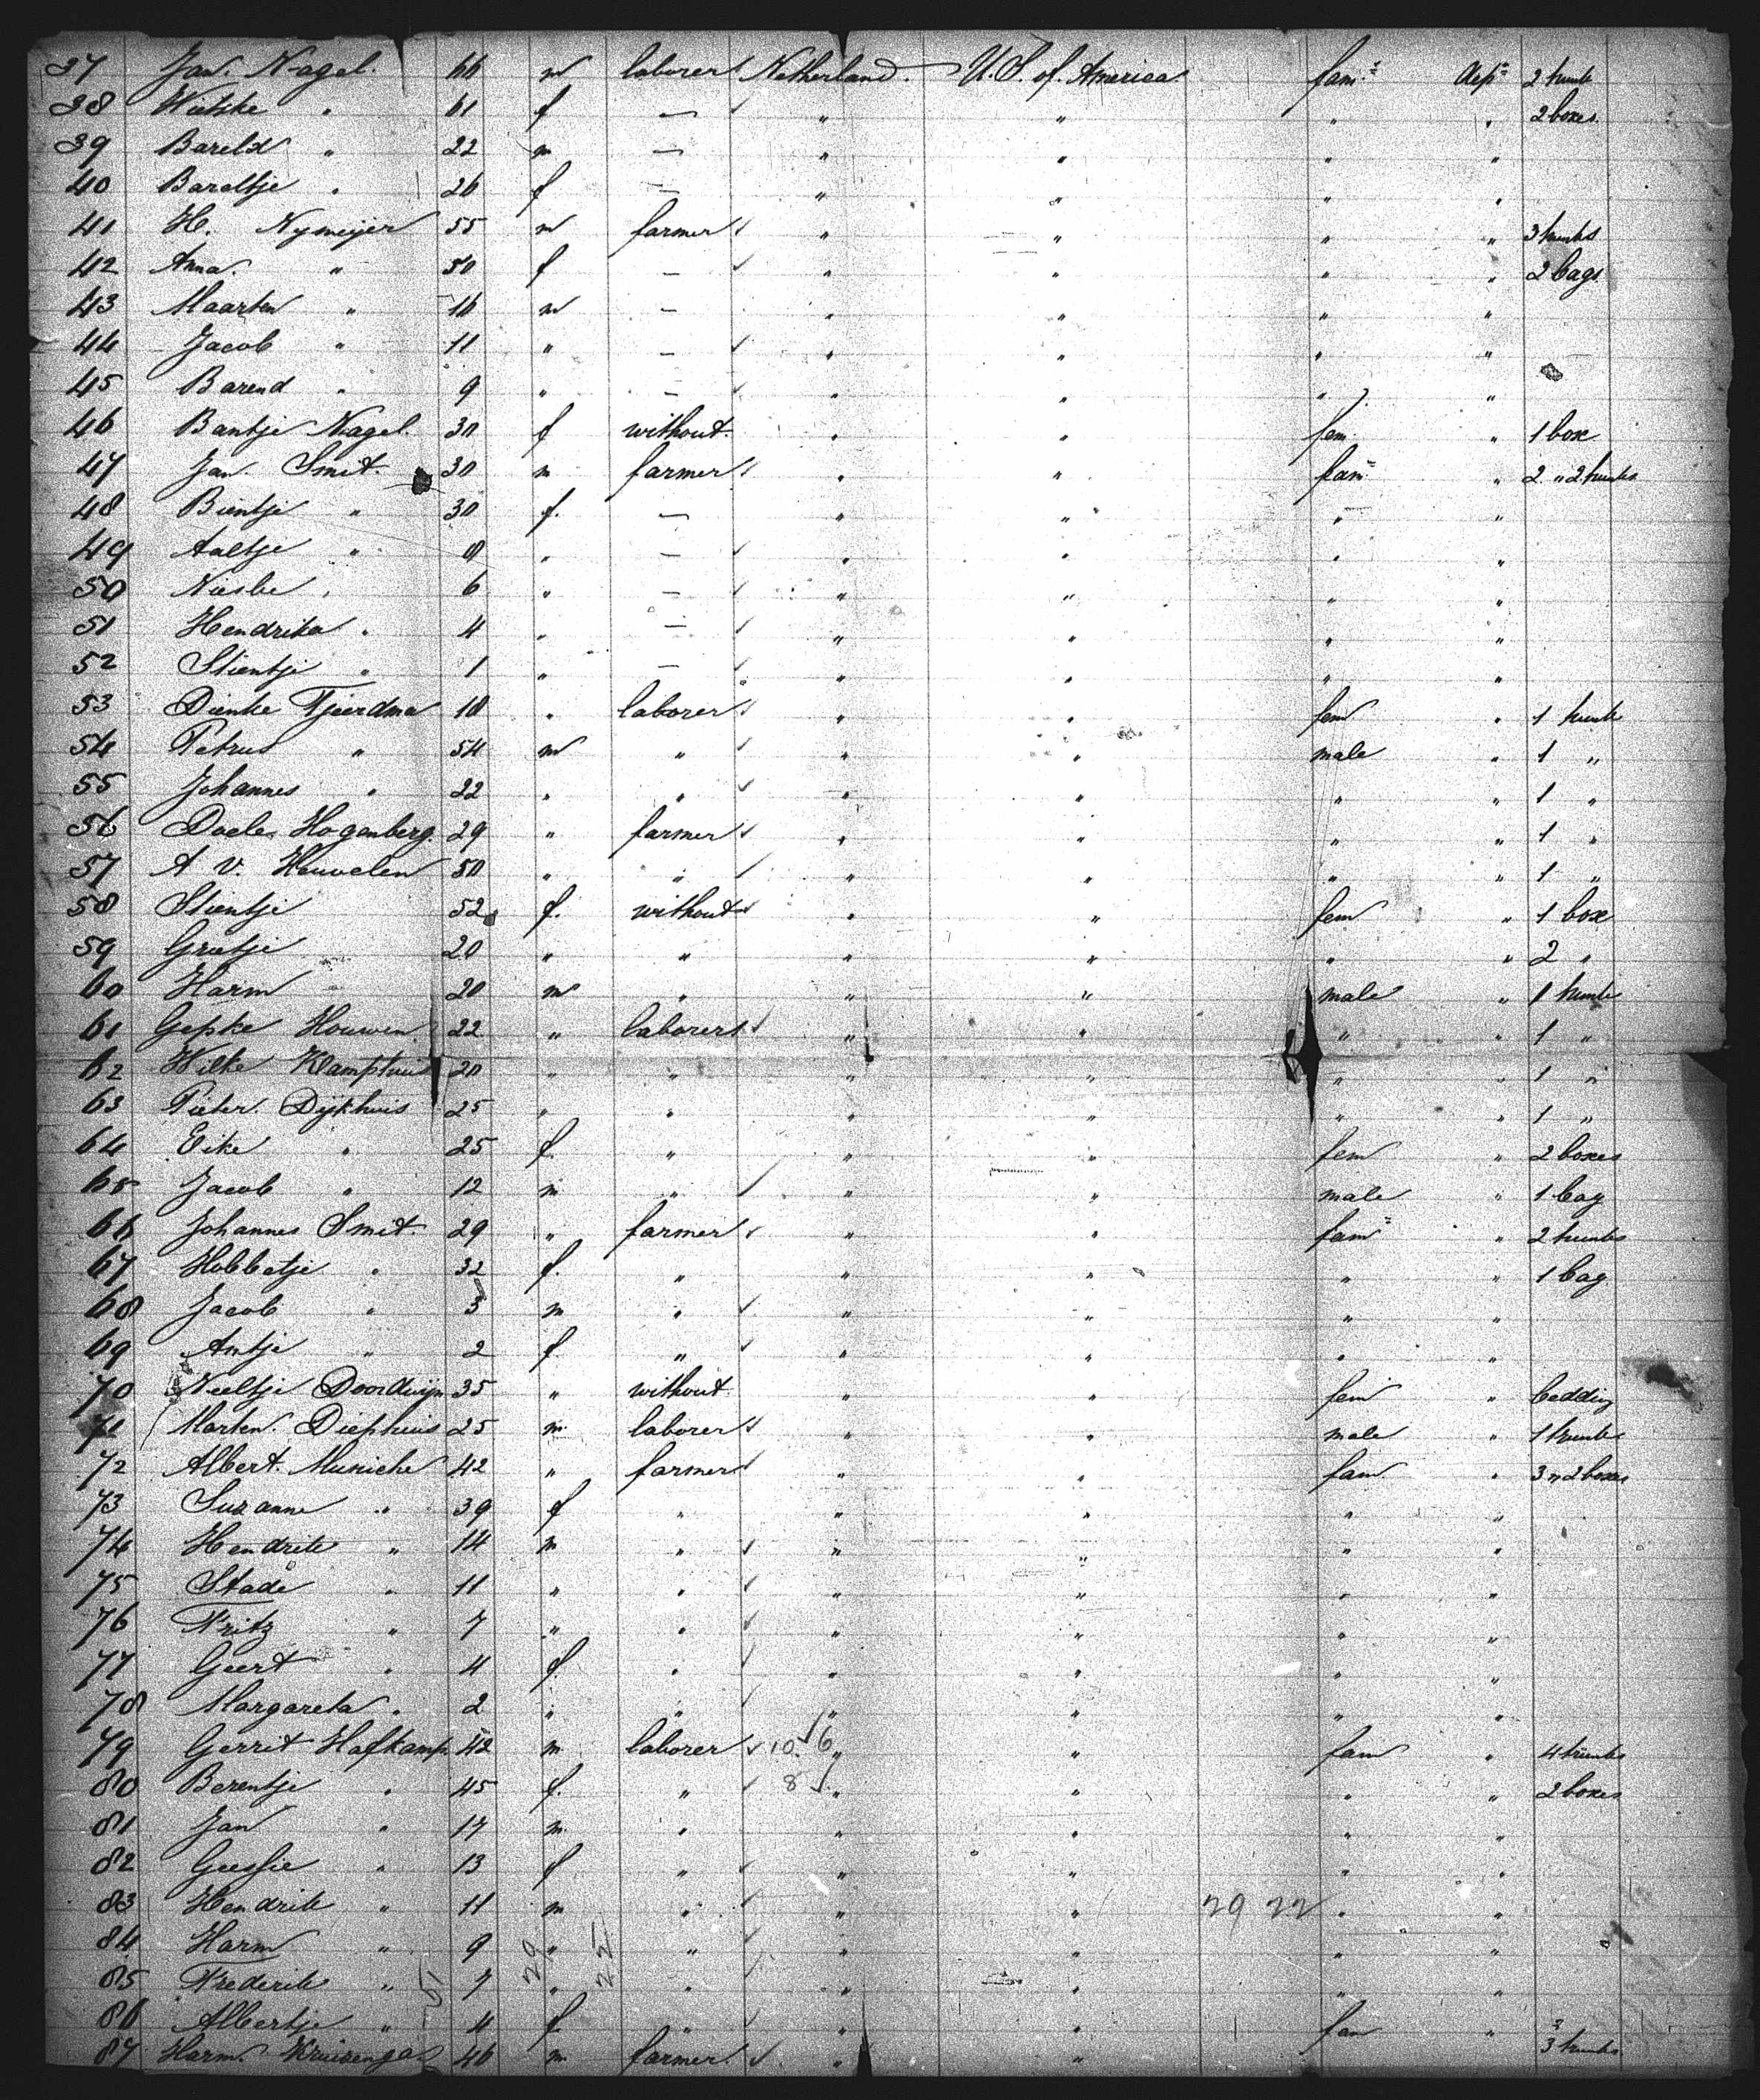 37 Jan. Nagel. 66 m laborer Netherland. U.S. of. America fam: Aep= 2 trunk
38 Wietske " 61 f — " " " " 2 boxes.
39 Bareld " 22 m — " " " "
40 Bareltje " 26 f — " " " "
41 H. Nymeijer 55 m farmer " " " " 3 trunks
42 Anna. " 50 f — " " " " 2 bags.
43 Maarten " 16 m — " " " "
44 Jacob " 11 " — " " " "
45 Barend " 9 " — " " " "
46 Bantje Nagel. 30 f without. " " fem " 1 box
47 Jan Smit. 30 m farmer " " fam= " 2 " 2 trunks
48 Bientje " 30 f. — " " " "
49 Aaltje " 8 " — " " " "
50 " 6 " — " " " "
51 Hendrika " 4 " — " " " "
52 Stientje " 1 " — " " " "
53 Dienke Tjeerdma 18 " laborer " " fem " 1 trunk
54 Petrus " 54 m " " " male " 1 "
55 Johannes " 22 " " " " " " 1 "
56 Doele Hogenberg. 29 " farmer " " " " 1 "
57 A v. Heuvelen 50 " " " " " " 1 "
58 Stientje 52 f. without " " fem " 1 box
59 Grietje 20 " " " " " " 2 "
60 Harm 20 m " " " male " 1 trunk
61 Gepke Houwen 22 " laborer " " " " 1 "
62 Wilke Klamphuis 20 " " " " " " 1 "
63 Pieter. Dijkhuis 25 " " " " " " 1 "
64 Eike " 25 f. " " " fem " 2 boxes
65 Jacob " 12 m " " " male " 1 bag
66 Johannes Smit. 29 " farmer " " fam= " 2 trunks
67 Hobbetje " 32 f. " " " " " 1 bag
68 Jacob " 3 m " " " " "
69 Antje " 2 f. " " " " "
70 Neeltje Doordwijn 35 " without " " fem " bedding
71 Marten. Diephuis 25 m laborer " " male " 1 trunk
72 Albert. Muniche 42 " farmer " " fam " 3 " 2 boxes
73 Suzanne " 39 f " " " " "
74 Hendrik " 14 m " " " " "
75 Stade " 11 " " " " " "
76 Fritz " 7 " " " " " "
77 Geert " 4 f. " " " " "
78 Margareta " 2 " " " " " "
79 Gerrit Hafkamp. 42 m laborer 10 6 " " fam " 4 trunks
80 Berentje " 45 f. " 8 " " " " 2 boxes
81 Jan " 17 m. " " " " "
82 Geessie " 13 f " " " " "
83 Hendrik " 11 m " " " 29 22 " "
84 Harm " 9 " " " " " "
85 Frederik " 7 " " " " " "
86 Albertje " 4 f. " " " fam "
87 Harm. Kruizenga 46 m farmer " " 3 trunks
29 22